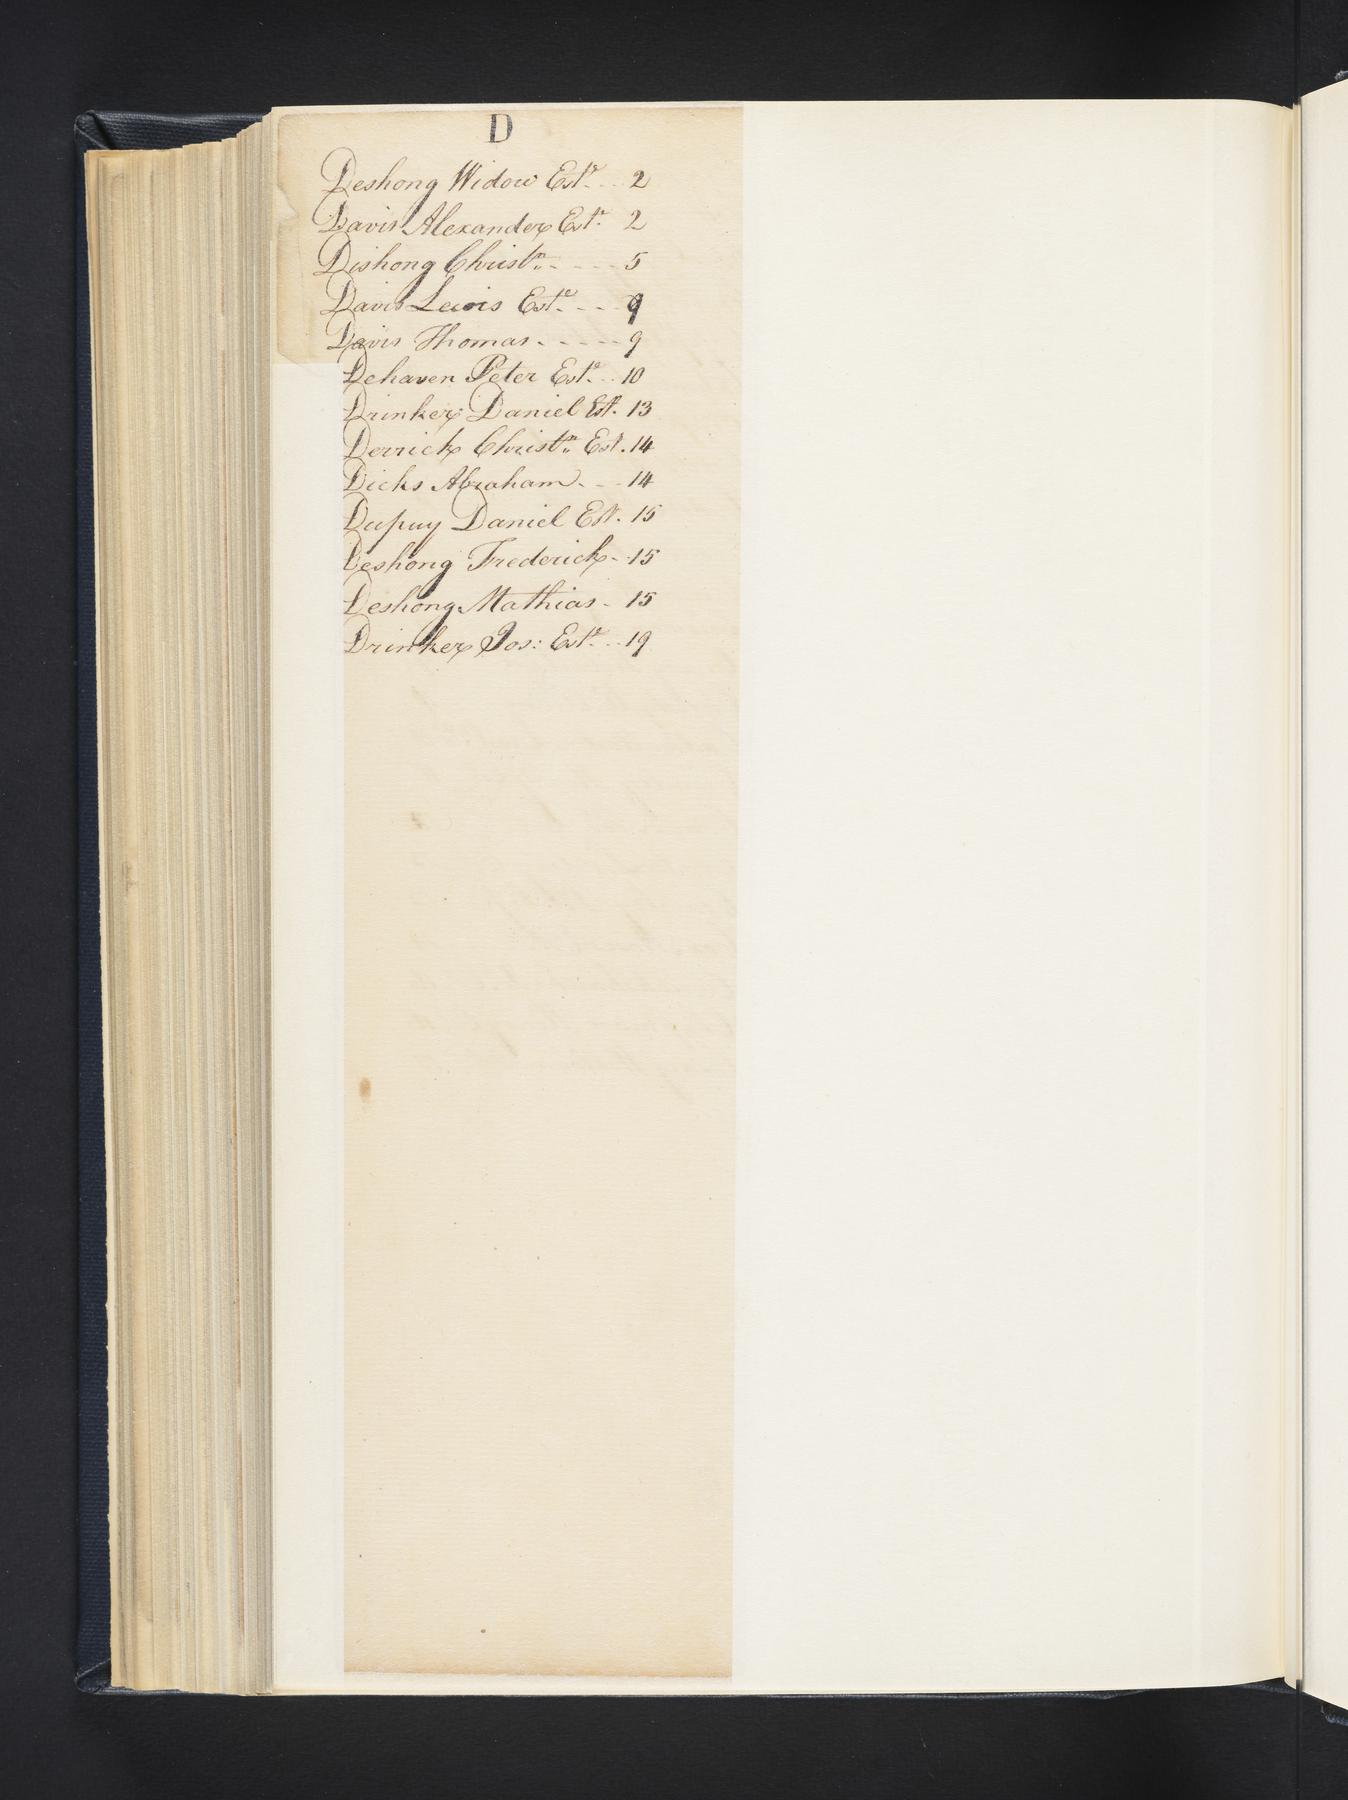 D
Deshong Widow Este. . . 2
Davis Alexander Este. 2
Dishong Christn. - - - - 5
Davis Lewis Este. - - 9
Davis Thomas. - - - - - 9
Dehaven Peter Este. . . 10
Drinker Daniel Est. 13
Derrick Christn. Est. 14
Dicks Abraham. - - 14
Dupuy Daniel Est. 15
Deshong Frederick - - 15
Deshong Mathias - 15
Drinker Jos: Este. . . 19